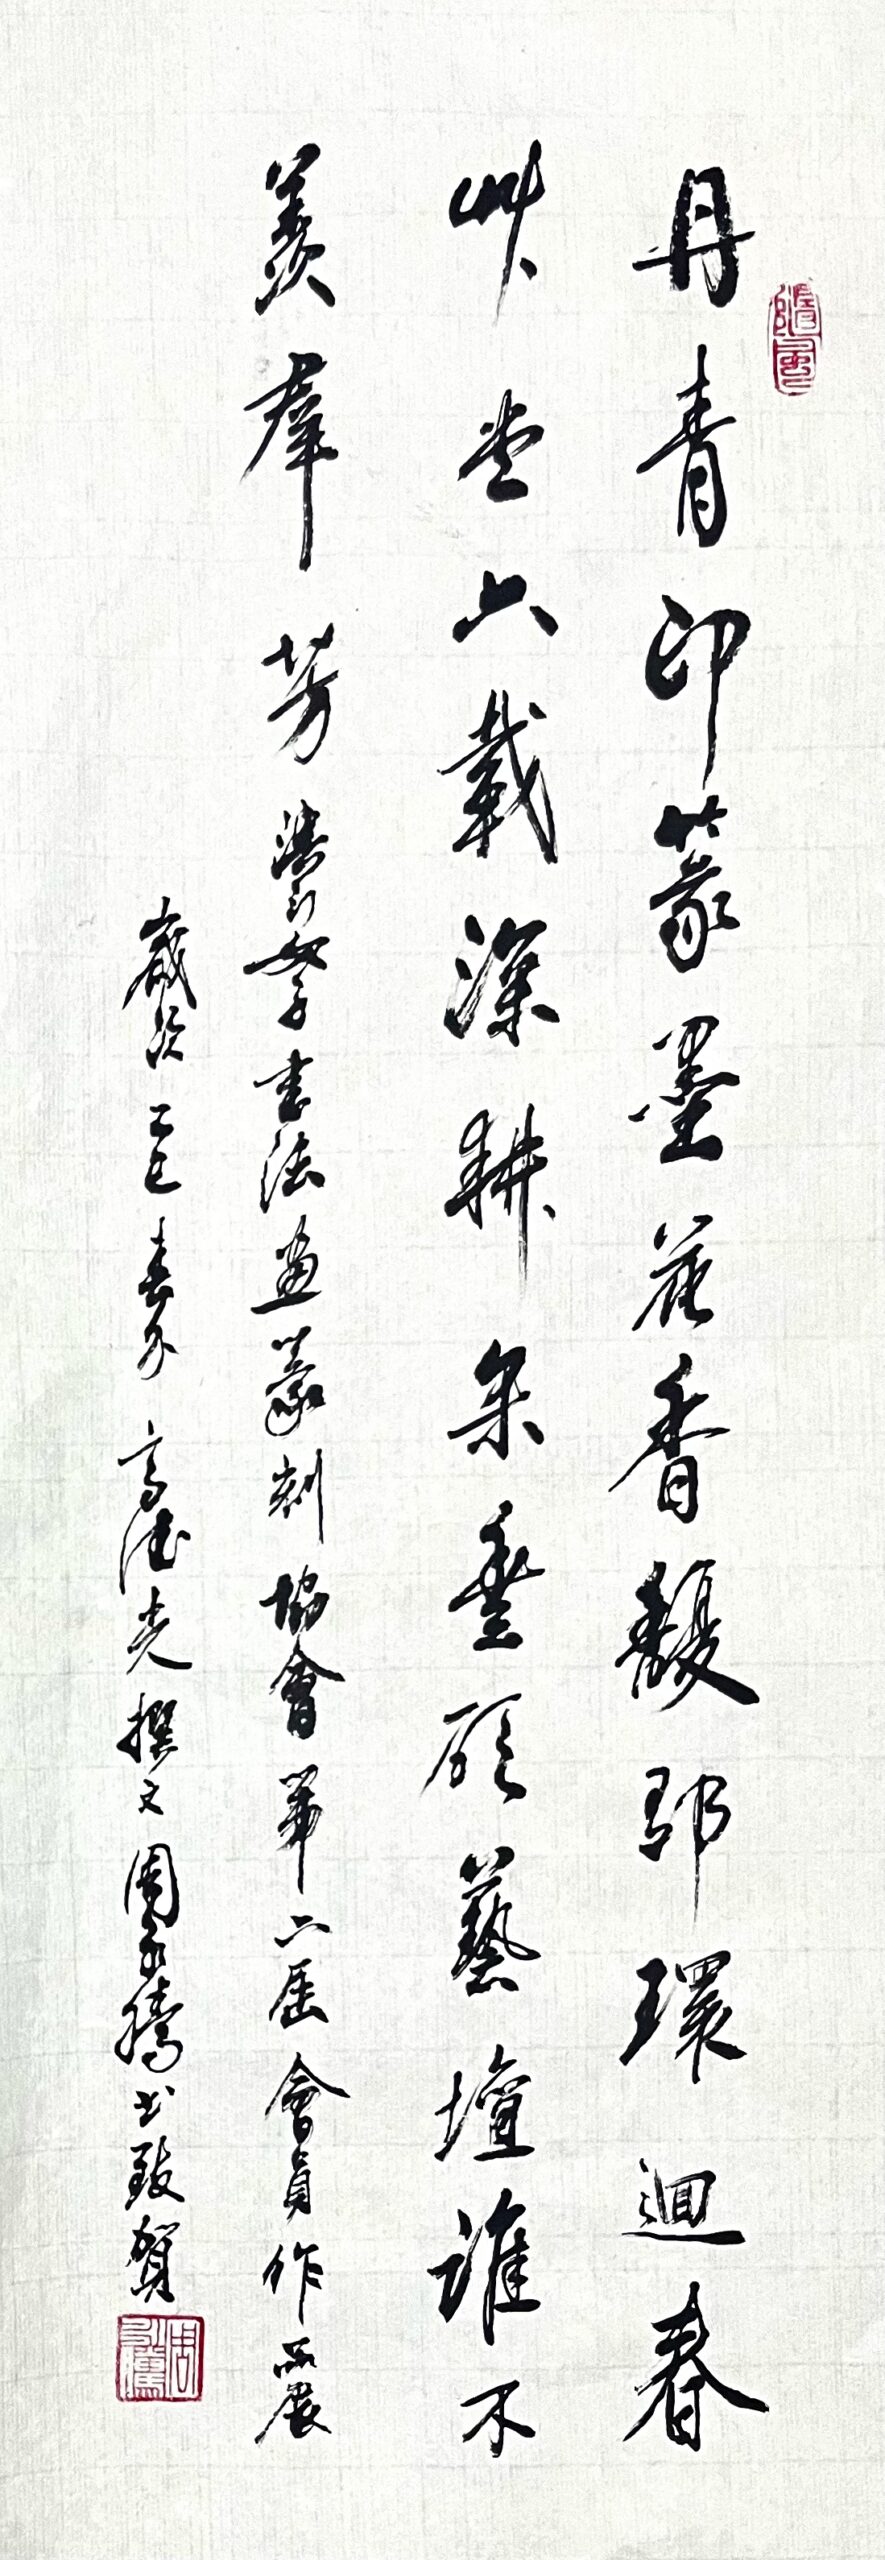 丹青印篆墨花香馥郁環迴春
艸堂六載深耕果碩藝壇誰不
羨羣芳 女子書法畫篆刻協會第二屆會員作品展
歲次乙巳春分 高德光撰文周騰書致賀